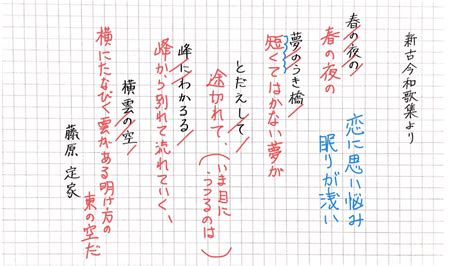 新古今和歌集より
春の夜の
春の夜の
恋に思い悩み
眠りが浅い
夢のうき橋
短くてはかない夢が
とだえして
途切れて、(いま目に
うつるのは)
峰にわかるる
峰から別れて流れていく、
横雲の空
横にたなびく雲がある明け方の
東の空だ
藤原定家